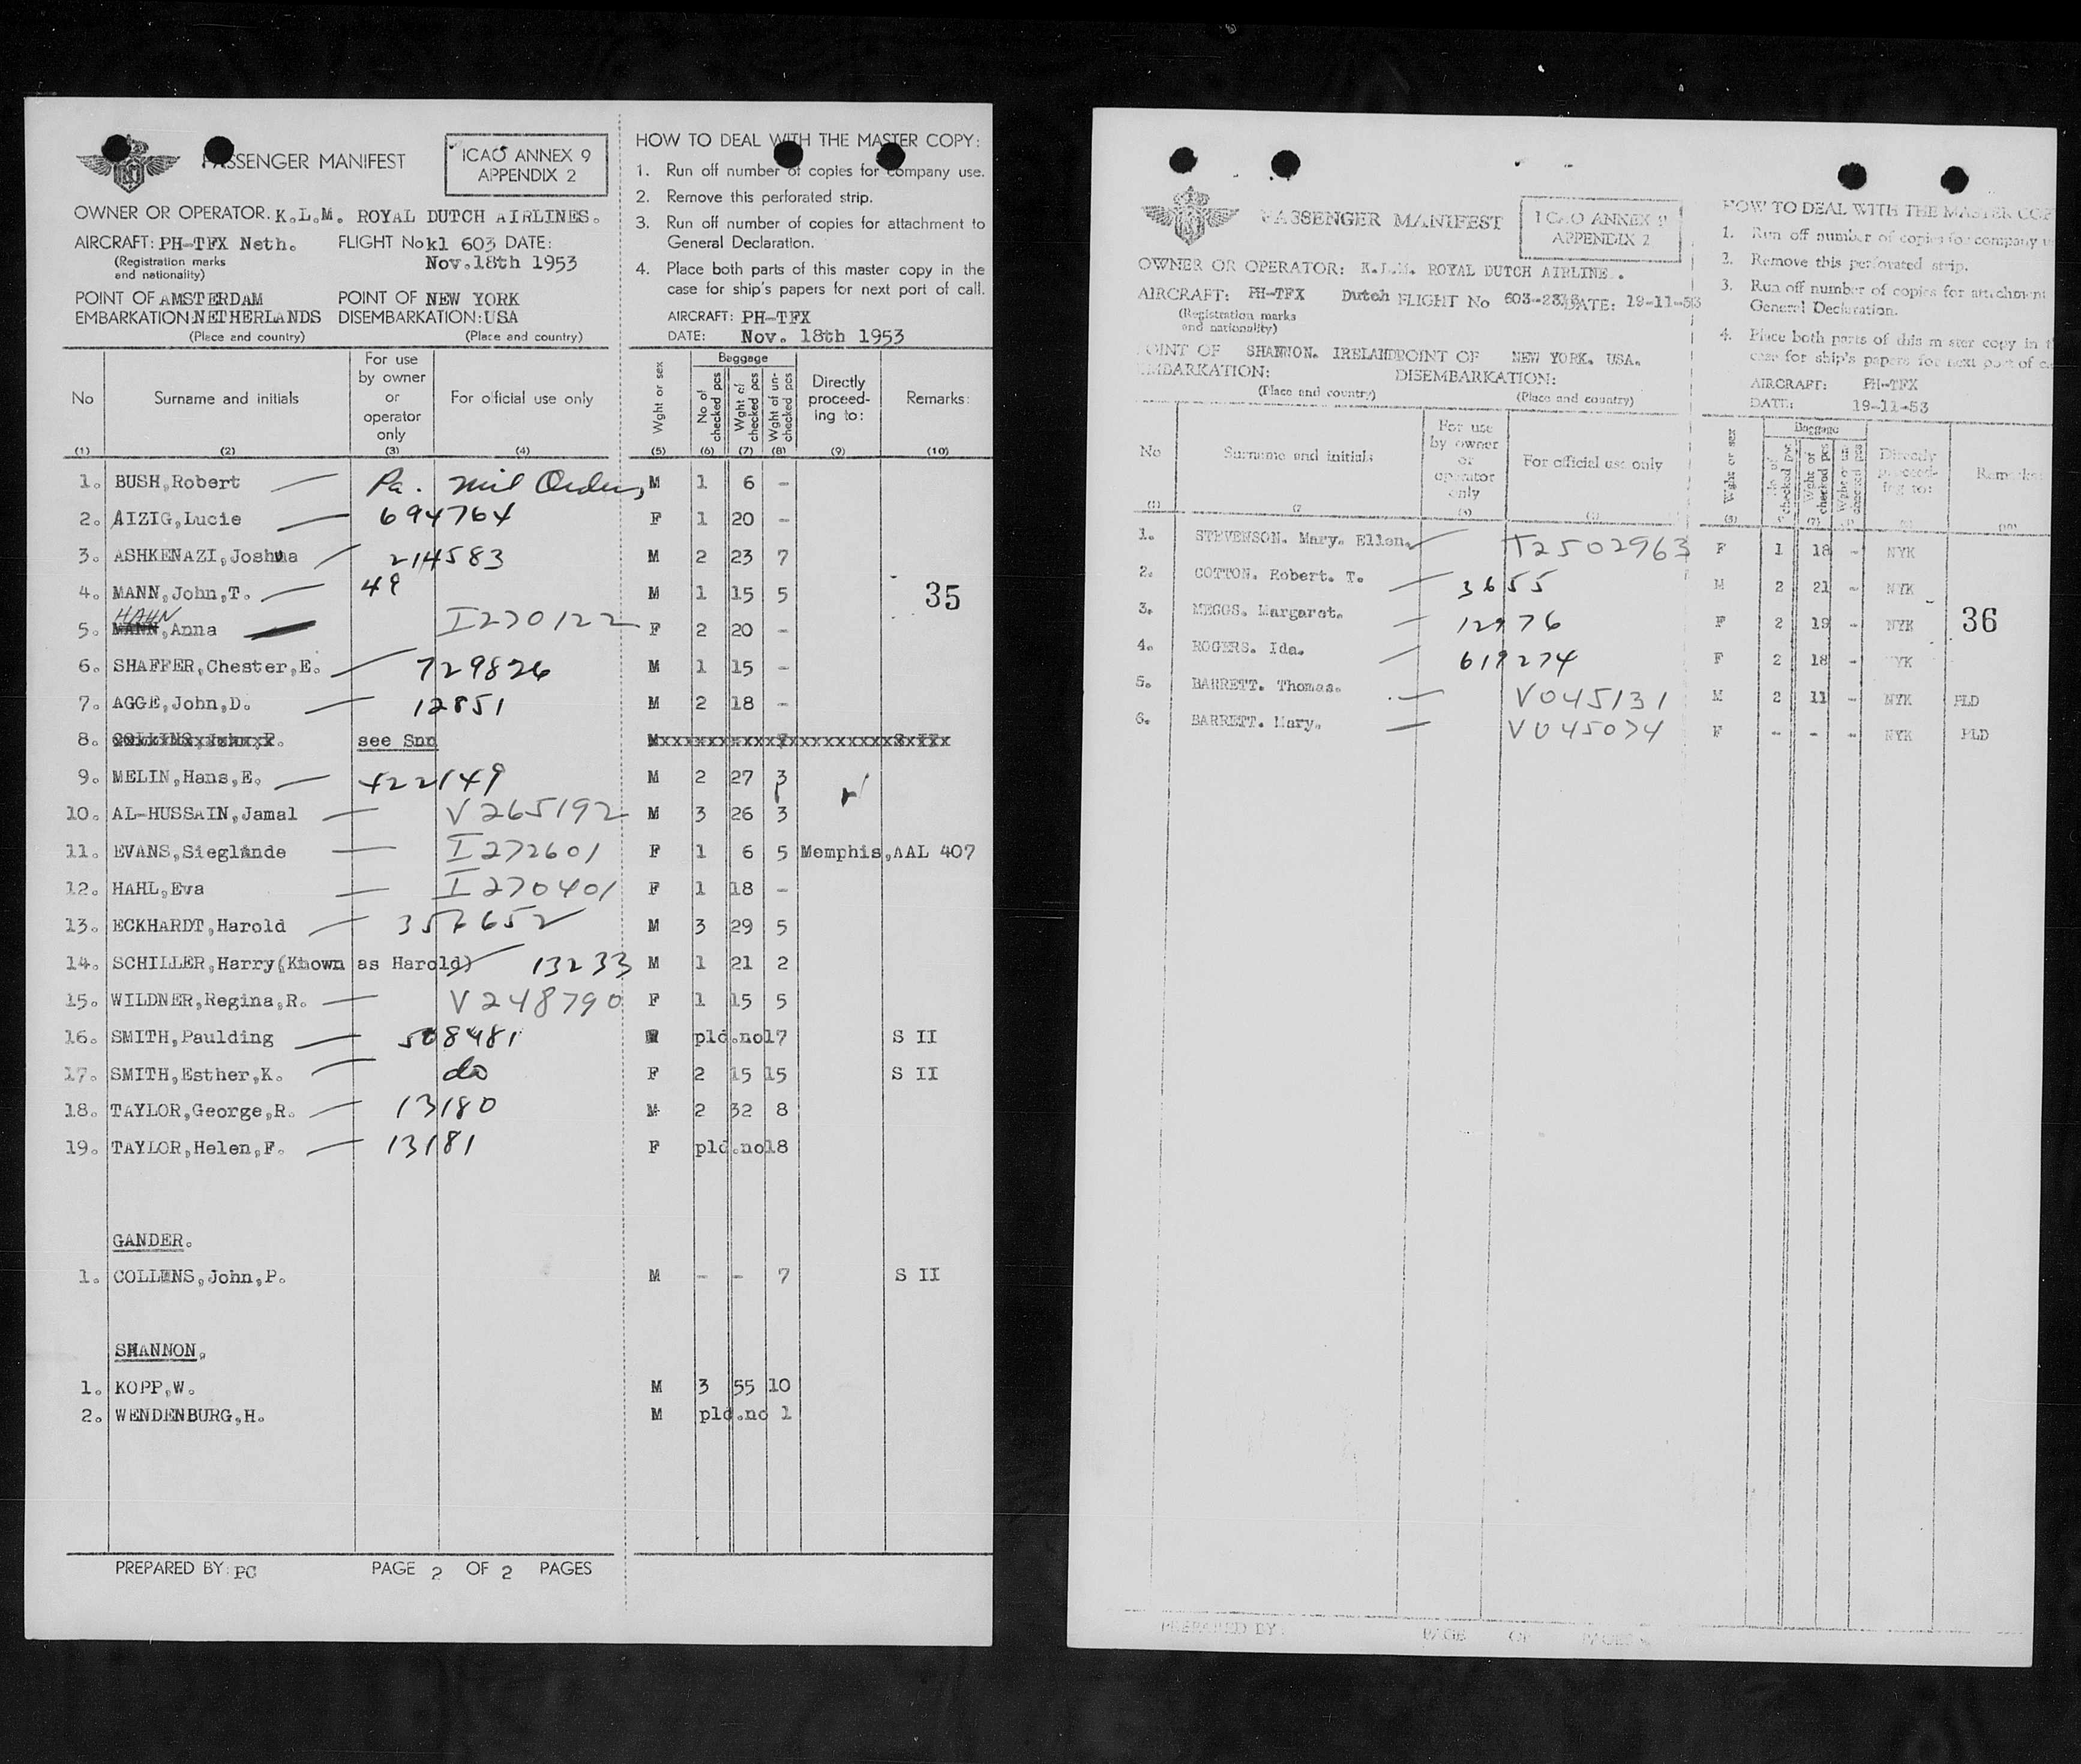 PASSENGER MANIFEST
ICAO ANNEX 9
APPENDIX 2
OWNER OR OPERATOR. K.L.M. ROYAL DUTCH AIRLINES.
AIRCRAFT: PH-TFX Neth. FLIGHT No kl 603 DATE:
(Registration marks
and nationality)
Nov.18th 1953
POINT OF AMSTERDAM POINT OF NEW YORK
EMBARKATION: NETHERLANDS DISEMBARKATION: USA
(Place and country) (Place and country)
HOW TO DEAL WITH THE MASTER COPY:
1. Run off number of copies for company use.
2. Remove this perforated strip.
3. Run off number of copies for attachment to
General Declaration.
4. Place both parts of this master copy in the
case for ship's papers for next port of call.
AIRCRAFT: PH-TFX
DATE: Nov. 18th 1953
No Surname and initials For use by owner or operator only For official use only Wght or sex Baggage No of checked pcs Wght of checked pcs Wght of un-checked pcs Directly proceed-ing to: Remarks:
(1) (2) (3) (4) (5) (6) (7) (8) (9) (10)
1. BUSH,Robert — Pa. Mil Orders M 1 6 -
2. AIZIG,Lucie — 694764 F 1 20 -
3. ASHKENAZI,Joshua — 214583 M 2 23 7
4. MANN,John,T. — 49 M 1 15 5 35
HAHN
5. MANN,Anna — I270122 F 2 20 -
6. SHAFFER,Chester,E. — 729826 M 1 15 -
7. AGGE,John,D. — 12851 M 2 18 -
8. COLLINS,John,P. see Snn Mxxxxxxxxxxxxxxxxxxxxxxxx
9. MELIN,Hans,E. — 422149 M 2 27 3
10. AL-HUSSAIN,Jamal — V265192 M 3 26 3
11. EVANS,Sieglinde — I272601 F 1 6 5 Memphis,AAL 407
12. HAHL,Eva — I270401 F 1 18 -
13. ECKHARDT,Harold — 357652 M 3 29 5
14. SCHILLER,Harry(Known as Harold) 13233 M 1 21 2
15. WILDNER,Regina,R. — V248790 F 1 15 5
16. SMITH,Paulding — 508481 M pld.no17 S II
17. SMITH,Esther,K. — do F 2 15 15 S II
18. TAYLOR,George,R. — 13180 M 2 32 8
19. TAYLOR,Helen,F. — 13181 F pld.no18
GANDER.
1. COLLINS,John,P. M - - 7 S II
SHANNON.
1. KOPP,W. M 3 55 10
2. WENDENBURG,H. M pld.no 1
PREPARED BY: PC PAGE 2 OF 2 PAGES
PASSENGER MANIFEST
ICAO ANNEX 9
APPENDIX 2
OWNER OR OPERATOR: K.L.M. ROYAL DUTCH AIRLINE.
AIRCRAFT: PH-TFX Dutch FLIGHT No 603- DATE: 19-11-53
(Registration marks
and nationality)
POINT OF SHANNON. IRELAND POINT OF NEW YORK. USA.
EMBARKATION: DISEMBARKATION:
(Place and country) (Place and country)
HOW TO DEAL WITH THE MASTER COP
1. Run off number of copies for company u
2. Remove this perforated strip.
3. Run off number of copies for attachment
General Declaration.
4. Place both parts of this master copy in t
case for ship's papers for next port of c
AIRCRAFT: PH-TFX
DATE: 19-11-53
No Surname and initials For use by owner or operator only For official use only Wght or sex Baggage No of checked pcs Wght of checked pcs Wght of un-checked pcs Directly proceed-ing to: Remarks
1. STEVENSON. Mary. Ellen. T2502963 F 1 18 - NYK
2. COTTON. Robert. T. — 3655 M 2 21 - NYK
3. MEGGS. Margaret. — 12976 F 2 19 - NYK 36
4. ROGERS. Ida. — 619274 F 2 18 - NYK
5. BARRETT. Thomas. — V045131 M 2 11 - NYK PLD
6. BARRETT. Mary. — V045074 F - - - NYK PLD
PREPARED BY: PAGE OF PAGES